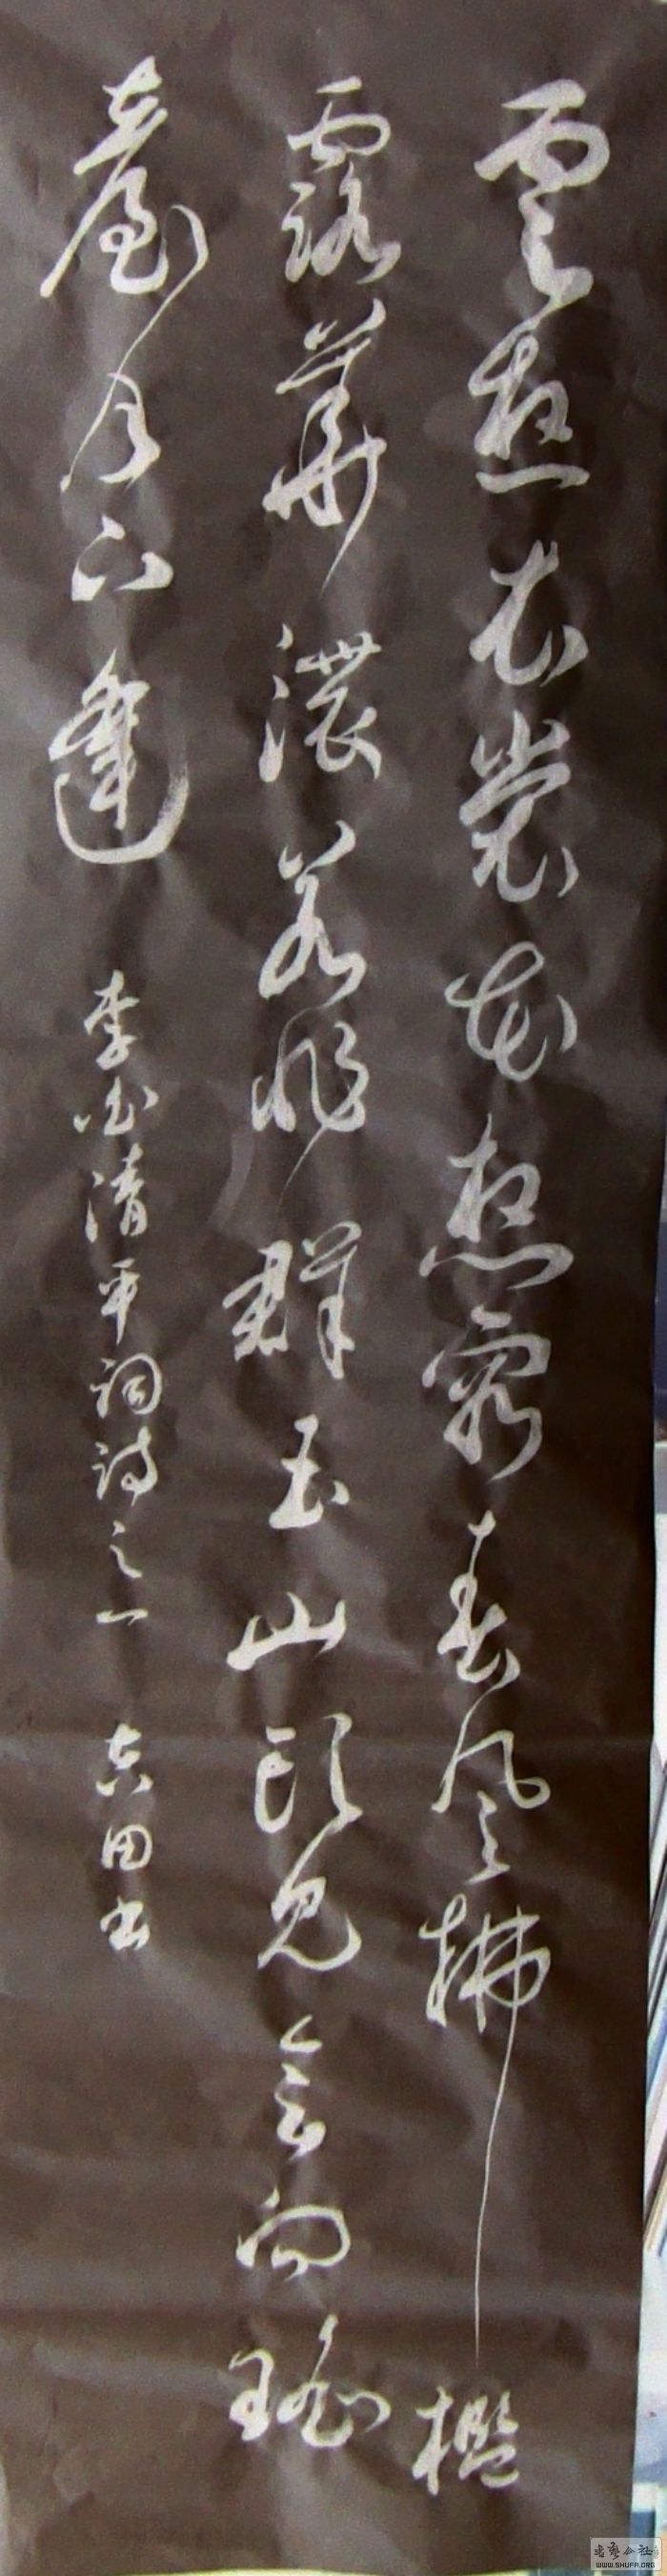 雲想衣裳花想容春風拂檻
露華濃若非群玉山頭見會向瑤
臺月下逢 李白清平詞詩之一 田书
书艺公社
WWW.SHUFA.ORG